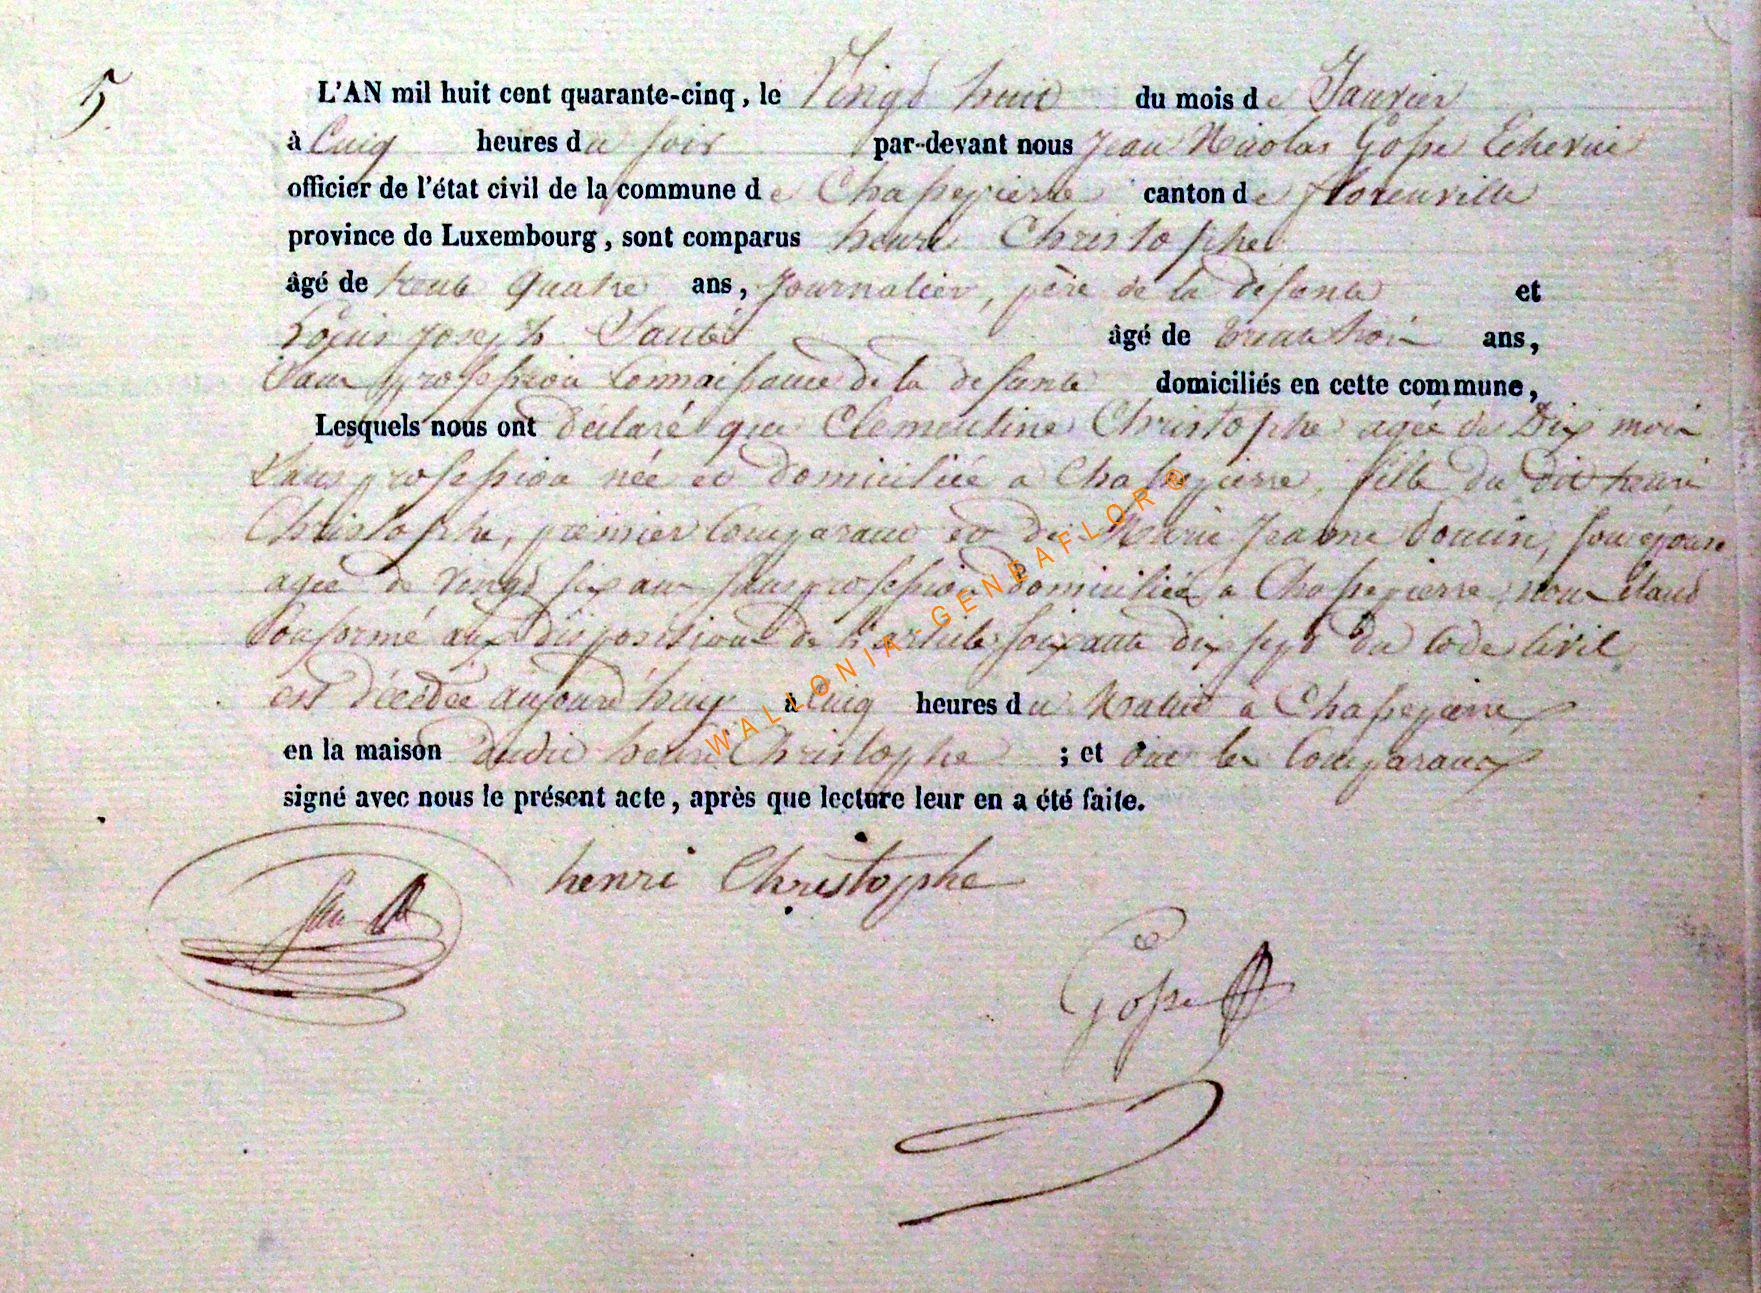 5.
L'AN mil huit cent quarante-cinq, le Vingt huit du mois de Janvier
à Cinq heures du soir par-devant nous Jean Nicolas Gosse Echevin
officier de l'état civil de la commune de Chassepierre canton de florenville
province de Luxembourg, sont comparus henri Christophe
âgé de trente quatre ans, Journalier, père de la défunte et
Louis Joseph âgé de trente trois ans,
Sans profession Connaissance de la defunte domiciliés en cette commune,
Lesquels nous ont déclaré que Clementine Christophe agée de Dix mois
Sans profession née et domiciliée a Chassepierre, fille du dit henri
Christophe, premier Comparant et de Marie Jeanne son épouse
agée de Vingt six ans sans profession domiciliée a Chassepierre, nous étant
Conformé aux dispositions de l'article soixante dix sept du Code Civil
est décédée aujourd'huy à Cinq heures du Matin a Chassepierre
en la maison dudit henri Christophe ; et ont les Comparants
signé avec nous le présent acte, après que lecture leur en a été faite.
henri Christophe
Gosse
WALLONIA-GENEAFLOR®